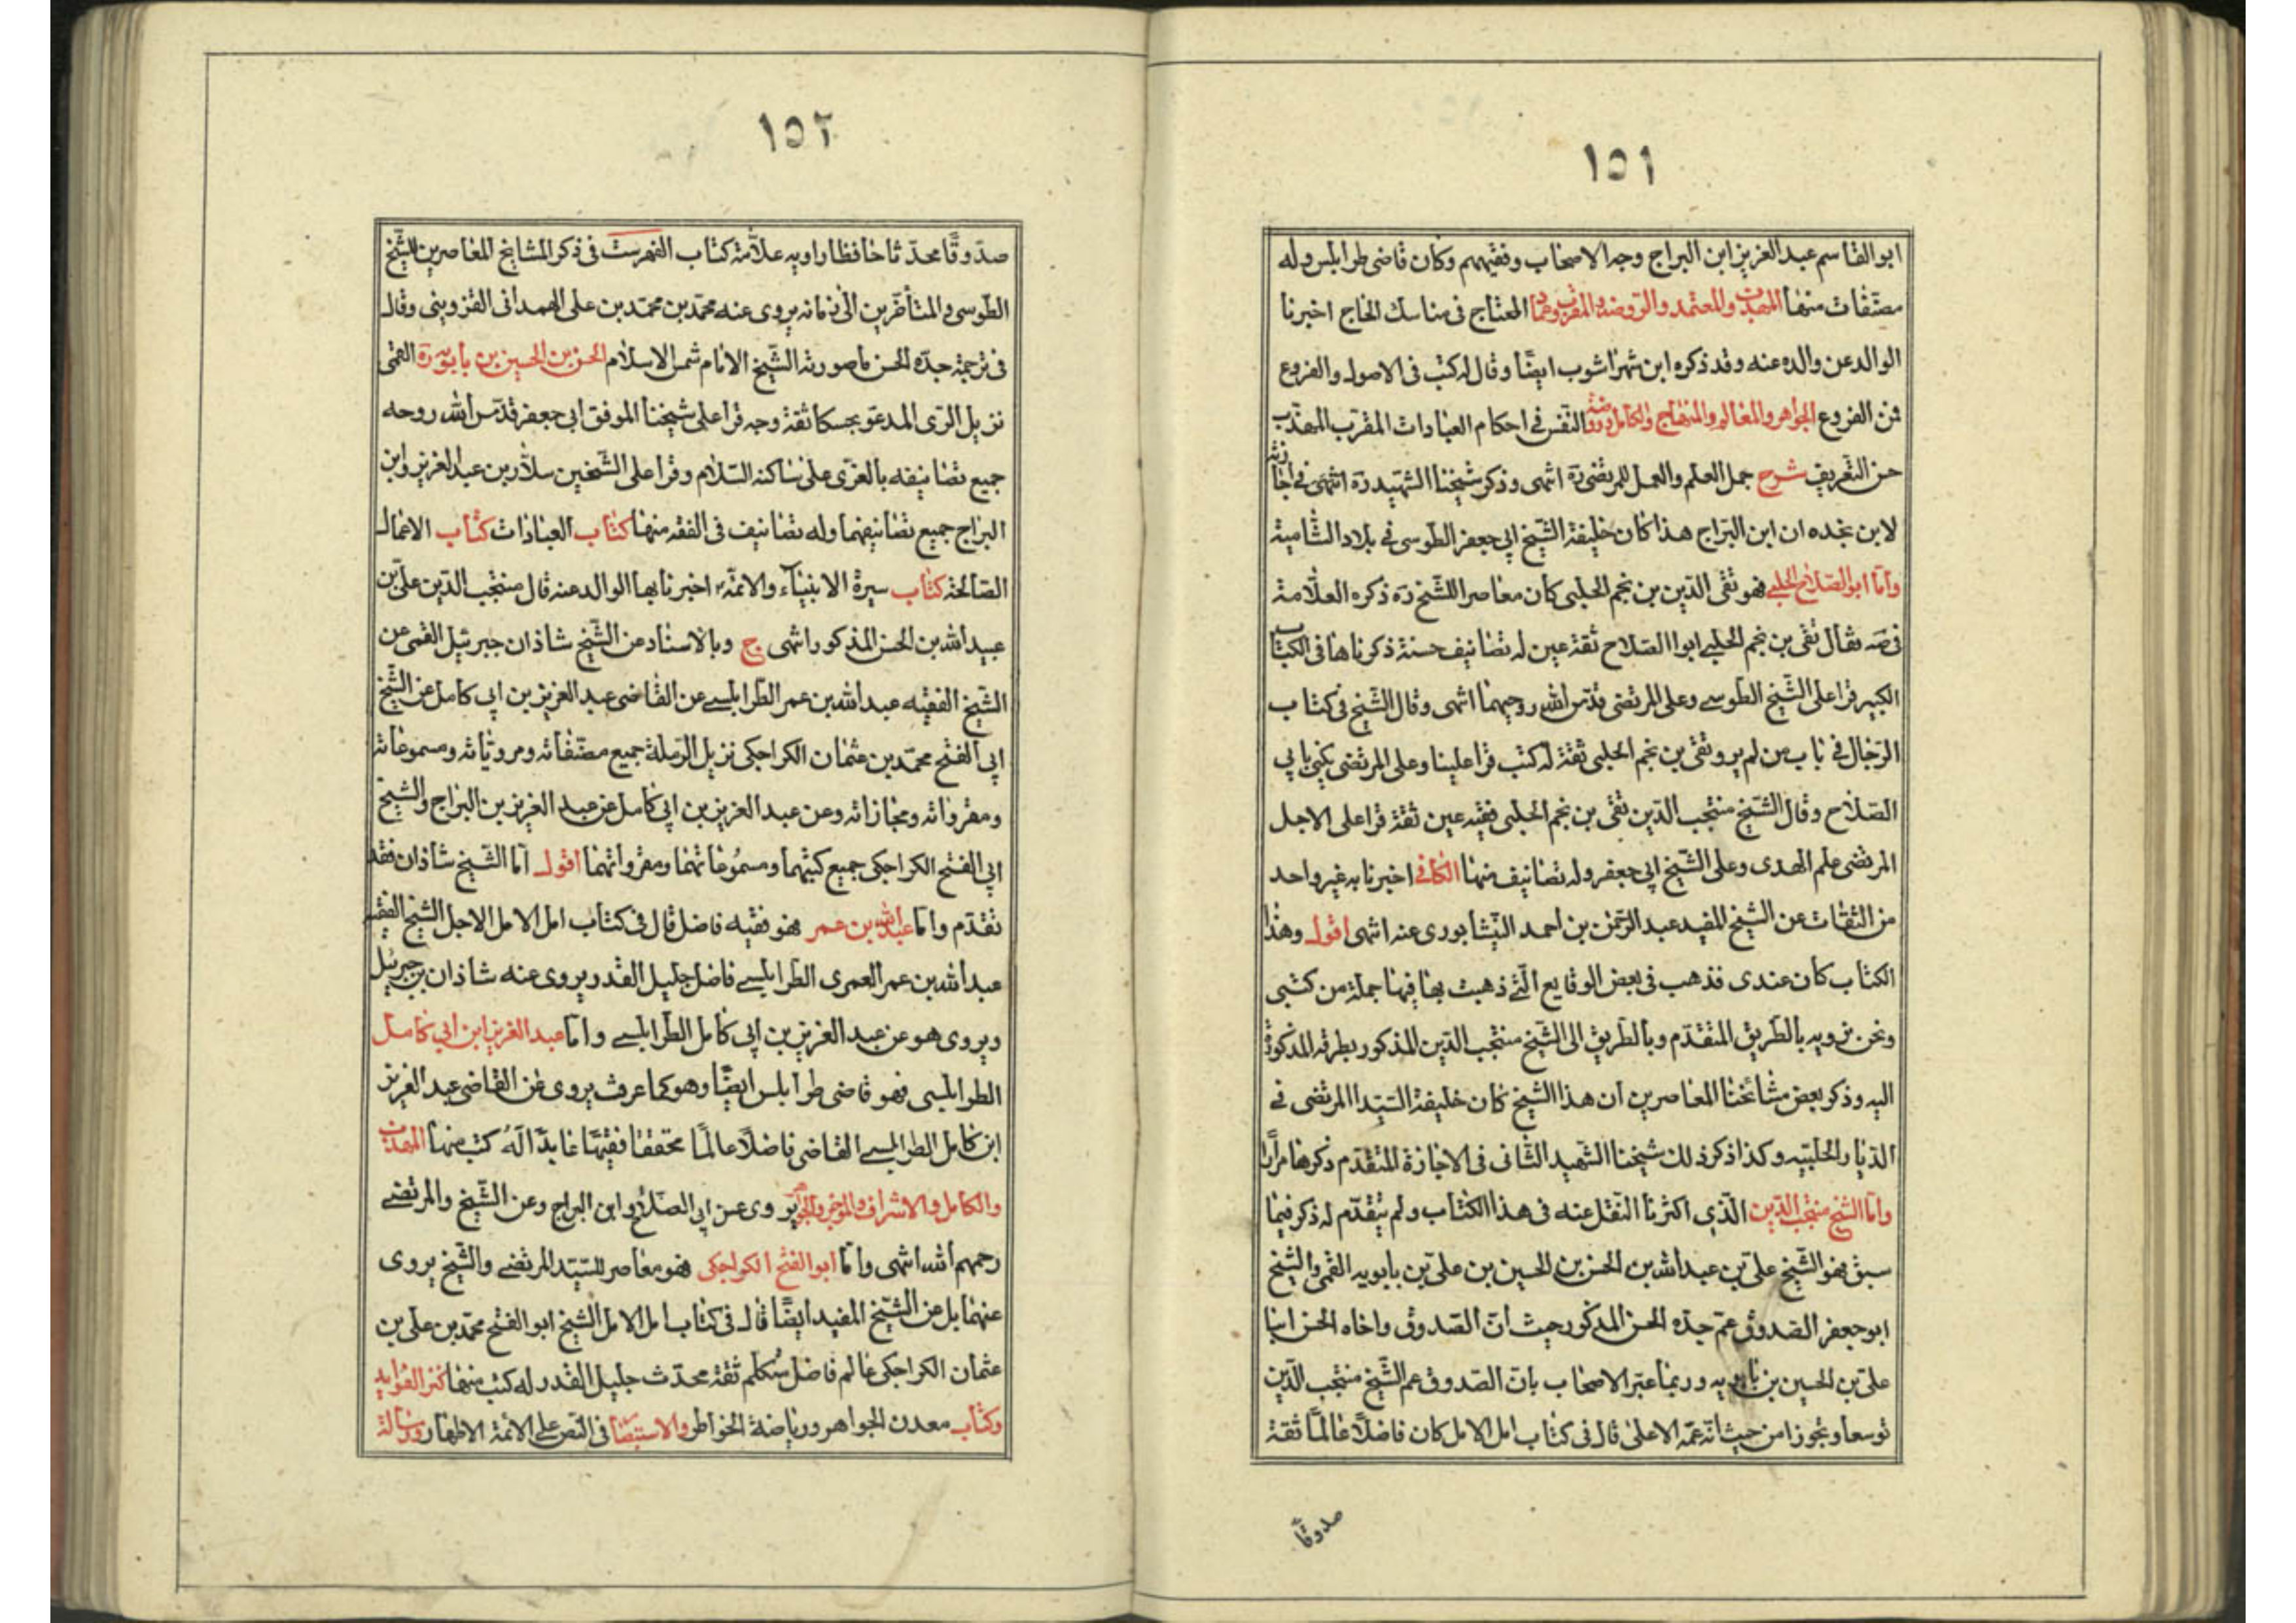 ١٥١
ابو القاسم عبد العزيز ابن البراج وجه الاصحاب وفقيههم وكان قاضى طرابلس وله
مصنّفات منها المهذب والمعتمد والروضة والمقرب وعماد المحتاج فى مناسك الحاج اخبرنا
الوالد عن والده عنه وقد ذكره ابن شهراشوب ايضًا وقال له كتب فى الاصول والفروع
فمن الفروع الجواهر والمعالم والمنهاج والكامل وروضة النفس فى احكام العبادات المقرب المهذب
حسن التعريف شرح جمل العلم والعمل للمرتضى ره انتهى وذكر شيخنا الشهيد ره انتهى فى اجازته
لابن نجده ان ابن البراج هذا كان خليفة الشيخ ابى جعفر الطوسى فى بلاد الشامية
وامّا ابو الصلاح الحلبى فهو تقى الدين بن نجم الحلبى كان معاصرا للشيخ ره ذكره العلّامة
فى صه فقال تقى بن نجم الحلبى ابوا الصلاح ثقة عين له تصانيف حسنة ذكرناها فى الكتاب
الكبير قرا على الشيخ الطوسى وعلى المرتضى قدّس الله روحيهما انتهى وقال الشيخ فى كتاب
الرجال فى باب من لم يرو تقى بن نجم الحلبى ثقة له كتب قرا علينا وعلى المرتضى يكنى بابى
الصلاح وقال الشيخ منتجب الدين تقى بن نجم الحلبى فقيه عين ثقة قرا على الاجل
المرتضى علم الهدى وعلى الشيخ ابى جعفر وله تصانيف منها الكافى اخبرنا به غير واحد
من الثقات عن الشيخ المفيد عبد الرحمن بن احمد النيشابورى عنه انتهى اقول وهذا
الكتاب كان عندى فذهب فى بعض الوقايع الّتى ذهبت بها فيها جملة من كتبى
ونحن نرويه بالطريق المتقدّم وبالطريق الى الشيخ منتجب الدين المذكور بطرقه المذكورة
اليه وذكر بعض مشائخنا المعاصرين ان هذا الشيخ كان خليفة السيّد المرتضى فى
الديار الحلبيّه وكذا ذكر ذلك شيخنا الشهيد الثانى فى الاجازة المتقدّم ذكرها مرارًا
وامّا الشيخ منتجب الدين الّذى اكثرنا النقل عنه فى هذا الكتاب ولم يتقدّم له ذكر فيما
سبق فهو الشيخ علىّ بن عبيد الله بن الحسن بن الحسين بن علىّ بن بابويه القمى والشيخ
ابو جعفر الصدوق عم جدّه الحسن المذكور حيث انّ الصدوق واخاه الحسن ابنا
علىّ بن الحسين بن بابويه وربما عبّر الاصحاب بانّ الصدوق عم الشيخ منتجب الدين
توسعا وتجوزا من حيث انّه عمّه الاعلى قال فى كتاب امل الامل كان فاضلًا عالمًا ثقة
صدوقًا
١٥٢
صدوقًا محدّثا حافظا راويه علاّمة كتاب الفهرست فى ذكر المشايخ المعاصرين للشيخ
الطوسى والمتأخرين الى زمانه يروى عنه محمّد بن محمّد بن على الهمدانى القزوينى وقال
فى ترجمة جدّه الحسن ما صورته الشيخ الامام شمس الاسلام الحسن بن الحسين بن بابويه ره القمى
نزيل الرّى المدعو بحسكا ثقة وجه قرا على شيخنا الموفق ابى جعفر قدّس الله روحه
جميع تصانيفه بالغرّى على ساكنه السّلام وقرا على الشيخين سلّار بن عبد العزيز وابن
البراج جميع تصانيفهما وله تصانيف فى الفقه منها كتاب العبادات كتاب الاعمال
الصالحة كتاب سيرة الانبياء والائمّة اخبرنا بها الوالد عنه قال منتجب الدين علىّ بن
عبيد الله بن الحسن المذكور انتهى ح وبالاسناد عن الشيخ شاذان جبرئيل القمى عن
الشيخ الفقيه عبد الله بن عمر الطرابلسى عن القاضى عبد العزيز بن ابى كامل عن الشيخ
ابى الفتح محمّد بن عثمان الكراجكى نزيل الرملة جميع مصنّفاته ومروياته ومسموعاته
ومقرواته ومجازاته وعن عبد العزيز بن ابى كامل عن عبد العزيز بن البراج والشيخ
ابى الفتح الكراجكى جميع كتبهما ومسموعاتهما ومقرواتهما اقول امّا الشيخ شاذان فقد
تقدّم وامّا عبد الله بن عمر فهو فقيه فاضل قال فى كتاب امل الامل الاجل الشيخ الفقيه
عبد الله بن عمر العمرى الطرابلسى فاضل جليل القدر يروى عنه شاذان بن جبرئيل
ويروى هو عن عبد العزيز بن ابى كامل الطرابلسى وامّا عبد العزيز ابن ابى كامل
الطرابلسى فهو قاضى طرابلس ايضًا وهو كما عرفت يروى عن القاضى عبد العزيز
ابن كامل الطرابلسى القاضى فاضلًا عالمًا محققا فقيهًا عابدًا له كتب منها المهذب
والكامل والاشراف والموجز والجواهر يروى عن ابى الصلاح وابن البراج وعن الشيخ والمرتضى
رحمهم الله انتهى وامّا ابو الفتح الكراجكى فهو معاصر للسيّد المرتضى والشيخ يروى
عنهما بل عن الشيخ المفيد ايضًا قال فى كتاب امل الامل الشيخ ابو الفتح محمّد بن على بن
عثمان الكراجكى عالم فاضل متكلم ثقة محدّث جليل القدر له كتب منها كنز الفوايد
وكتاب معدن الجواهر ورياضة الخواطر والاستبصار فى النص على الائمة الاطهار ورسالة